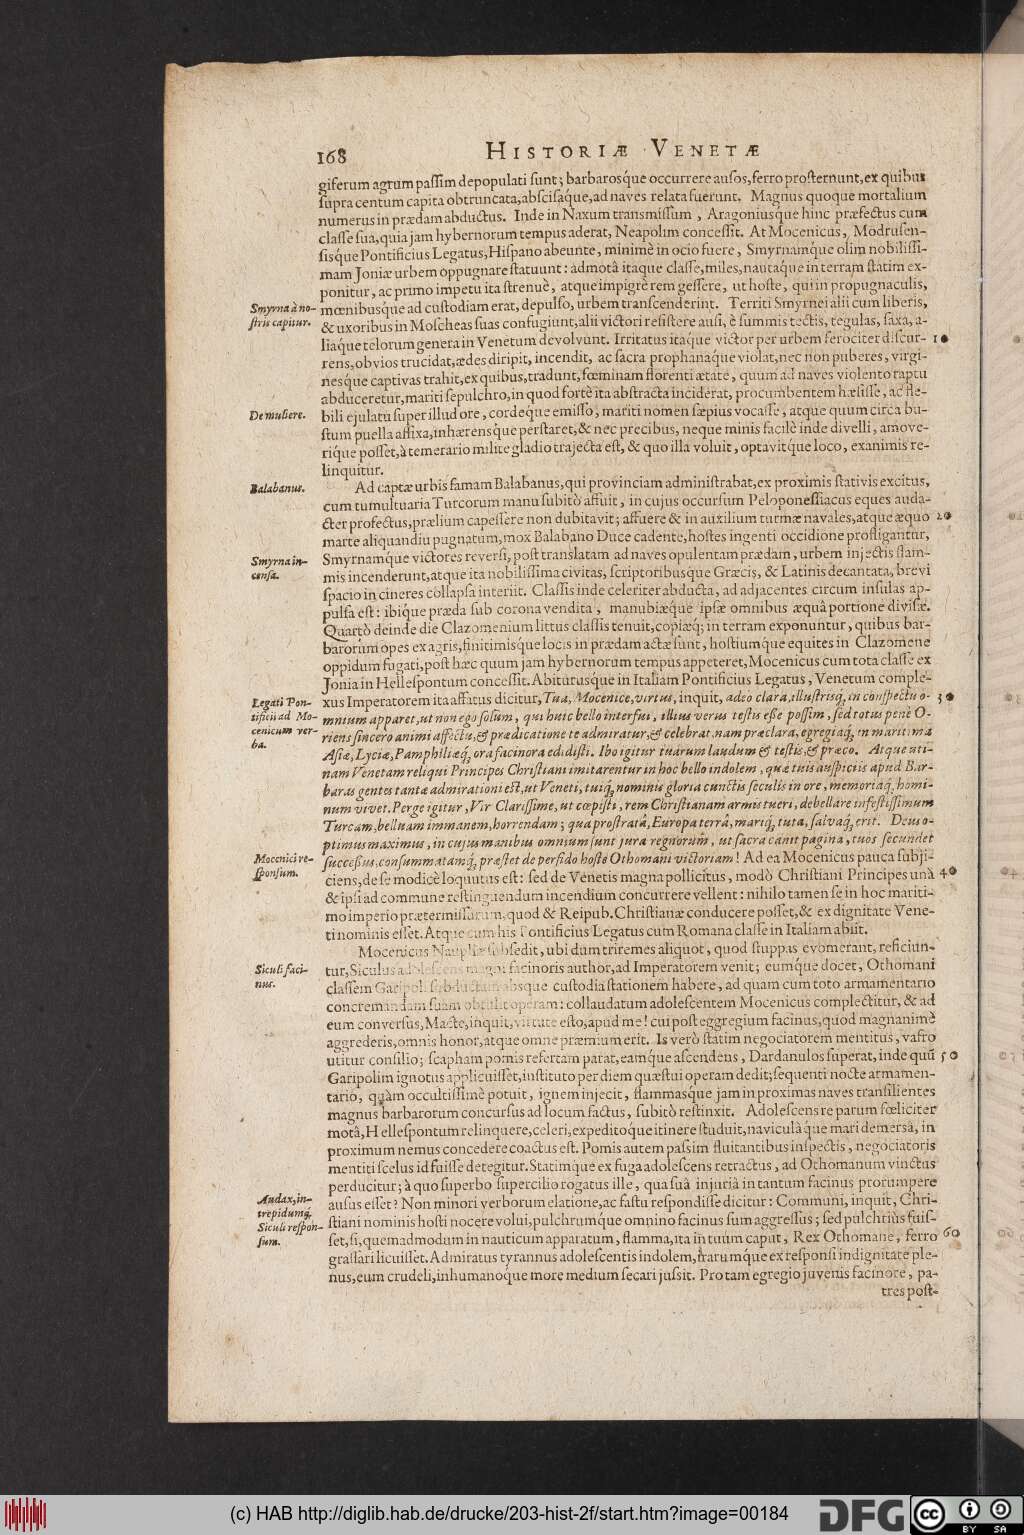 168 HISTORIÆ VENETÆ
giferum agrum paſſim depopulati ſunt; barbaroſque occurrere auſos, ferro proſternunt, ex quibus
ſupra centum capita obtruncata, abſciſaque, ad naves relata fuerunt. Magnus quoque mortalium
numerus in prædam abductus. Inde in Naxum transmiſſum, Aragoniusque hinc præfectus cum
claſſe ſua, quia jam hybernorum tempus aderat, Neapolim conceſſit. At Mocenicus, Modruſen-
ſisque Pontificius Legatus, Hiſpano abeunte, minimè in ocio fuere, Smyrnamque olim nobiliſſi-
mam Joniæ urbem oppugnare ſtatuunt: admotâ itaque claſſe, miles, nautaque in terram ſtatim ex-
ponitur, ac primo impetu ita ſtrenuè, atque impigrè rem geſſere, ut hoſte, qui in propugnaculis,
Smyrna à no-
ſtris capitur.
mœnibusque ad cuſtodiam erat, depulſo, urbem tranſcenderint. Territi Smyrnei alii cum liberis,
& uxoribus in Moſcheas ſuas confugiunt, alii victori reſiſtere auſi, è ſummis tectis, tegulas, ſaxa, a-
liaque telorum genera in Venetum devolvunt. Irritatus itaque victor per urbem ferociter diſcur- 10
rens, obvios trucidat, ædes diripit, incendit, ac ſacra prophanaque violat, nec non puberes, virgi-
nesque captivas trahit, ex quibus, tradunt, fœminam florenti ætate, quum ad naves violento raptu
abduceretur, mariti ſepulchro, in quod fortè ita abſtracta inciderat, procumbentem hæſiſſe, ac fle-
De muliere.
bili ejulatu ſuper illud ore, cordeque emiſſo, mariti nomen ſæpius vocaſſe, atque quum circa bu-
ſtum puella affixa, inhærensque perſtaret, & nec precibus, neque minis facilè inde divelli, amove-
rique poſſet, à temerario milite gladio trajecta eſt, & quo illa voluit, optavitque loco, exanimis re-
linquitur.
Balabanus.
Ad captæ urbis famam Balabanus, qui provinciam adminiſtrabat, ex proximis ſtativis excitus,
cum tumultuaria Turcorum manu ſubitò affuit, in cujus occurſum Peloponeſſiacus eques auda-
cter profectus, prælium capeſſere non dubitavit; affuere & in auxilium turmæ navales, atque æquo 20
marte aliquandiu pugnatum, mox Balabano Duce cadente, hoſtes ingenti occidione profligantur,
Smyrna in-
cenſa.
Smyrnamque victores reverſi, poſt translatam ad naves opulentam prædam, urbem injectis flam-
mis incenderunt, atque ita nobiliſſima civitas, ſcriptoribusque Græcis, & Latinis decantata, brevi
ſpacio in cineres collapſa interiit. Claſſis inde celeriter abducta, ad adjacentes circum inſulas ap-
pulſa eſt: ibique præda ſub corona vendita, manubiæque ipſæ omnibus æquâ portione diviſæ.
Quartò deinde die Clazomenium littus claſſis tenuit, copiæq; in terram exponuntur, quibus bar-
barorum opes ex agris, finitimisque locis in prædam actæ ſunt, hoſtiumque equites in Clazomene
oppidum fugati, poſt hæc quum jam hybernorum tempus appeteret, Mocenicus cum tota claſſe ex
Jonia in Helleſpontum conceſſit. Abiturusque in Italiam Pontificius Legatus, Venetum comple-
Legati Pon-
tificii ad Mo-
cenicum ver-
ba.
xus Imperatorem ita affatus dicitur, Tua, Mocenice, virtus, inquit, adeo clara, illuſtrisq; in conſpectu o- 30
mnium apparet, ut non ego ſolum, qui huic bello interfui, illius verus teſtis eſſe poſſim, ſed totus penè O-
riens ſincero animi affectu, & prædicatione te admiratur, & celebrat. nam præclara, egregiaq; in maritima
Aſiæ, Lyciæ, Pamphiliæq; ora facinora edidiſti. Ibo igitur tuarum laudum & teſtis, & præco. Atque uti-
nam Venetam reliqui Principes Chriſtiani imitarentur in hoc bello indolem, quæ tuis auſpiciis apud Bar-
baras gentes tantæ admirationi eſt, ut Veneti, tuiq; nominis gloria cunctis ſeculis in ore, memoriaq; homi-
num vivet. Perge igitur, Vir Clariſſime, ut cœpiſti, rem Chriſtianam armis tueri, debellare infeſtiſſimum
Turcam, belluam immanem, horrendam; qua proſtratâ, Europa terrâ, mariq; tuta, ſalvaq; erit. Deus o-
ptimus maximus, in cujus manibus omnium ſunt jura regnorum, ut ſacra canit pagina, tuos ſecundet
Mocenici re-
ſponſum.
ſucceſſus, conſummatamq; præſtet de perfido hoſte Othomani victoriam! Ad ea Mocenicus pauca ſubji-
ciens, de ſe modicè loquutus eſt: ſed de Venetis magna pollicitus, modò Chriſtiani Principes unà 40
& ipſi ad commune reſtinguendum incendium concurrere vellent: nihilo tamen ſe in hoc mariti-
mo imperio prætermiſſurum, quod & Reipub. Chriſtianæ conducere poſſet, & ex dignitate Vene-
ti nominis eſſet. Atque cum his Pontificius Legatus cum Romana claſſe in Italiam abiit.
Mocenicus Naupliæ ſubſedit, ubi dum triremes aliquot, quod ſtuppas evomerant, reficiun-
Siculi faci-
nus.
tur, Siculus adoleſcens magni facinoris author, ad Imperatorem venit; eumque docet, Othomani
claſſem Garipoli ſubductam absque cuſtodia ſtationem habere, ad quam cum toto armamentario
concremandam ſuam obtulit operam: collaudatum adoleſcentem Mocenicus complectitur, & ad
eum converſus, Macte, inquit, virtute eſto, apud me! cui poſt eggregium facinus, quod magnanimè
aggrederis, omnis honor, atque omne præmium erit. Is verò ſtatim negociatorem mentitus, vafro
utitur conſilio; ſcapham pomis refertam parat, eamque aſcendens, Dardanulos ſuperat, inde quū 50
Garipolim ignotus applicuiſſet, inſtituto per diem quæſtui operam dedit; ſequenti nocte armamen-
tario, quàm occultiſſimè potuit, ignem injecit, flammasque jam in proximas naves tranſilientes
magnus barbarorum concurſus ad locum factus, ſubitò reſtinxit. Adoleſcens re parum fœliciter
motâ, Helleſpontum relinquere, celeri, expeditoque itinere ſtuduit, naviculàque mari demersâ, in
proximum nemus concedere coactus eſt. Pomis autem paſſim fluitantibus inſpectis, negociatoris
mentiti ſcelus id fuiſſe detegitur. Statimque ex fuga adoleſcens retractus, ad Othomanum vinctus
perducitur; à quo ſuperbo ſupercilio rogatus ille, qua ſuâ injuriâ in tantum facinus prorumpere
Audax, in-
trepidumq;
Siculi reſpon-
ſum.
auſus eſſet? Non minori verborum elatione, ac faſtu reſpondiſſe dicitur: Communi, inquit, Chri-
ſtiani nominis hoſti nocere volui, pulchrumque omnino facinus ſum aggreſſus; ſed pulchriùs fuiſ-
ſet, ſi, quemadmodum in nauticum apparatum, flamma, ita in tuum caput, Rex Othomane, ferro 60
graſſari licuiſſet. Admiratus tyrannus adoleſcentis indolem, irarumque ex reſponſi indignitate ple-
nus, eum crudeli, inhumanoque more medium ſecari juſſit. Pro tam egregio juvenis facinore, pa-
tres poſt-
(c) HAB http://diglib.hab.de/drucke/203-hist-2f/start.htm?image=00184
DFG
cc
BY SA